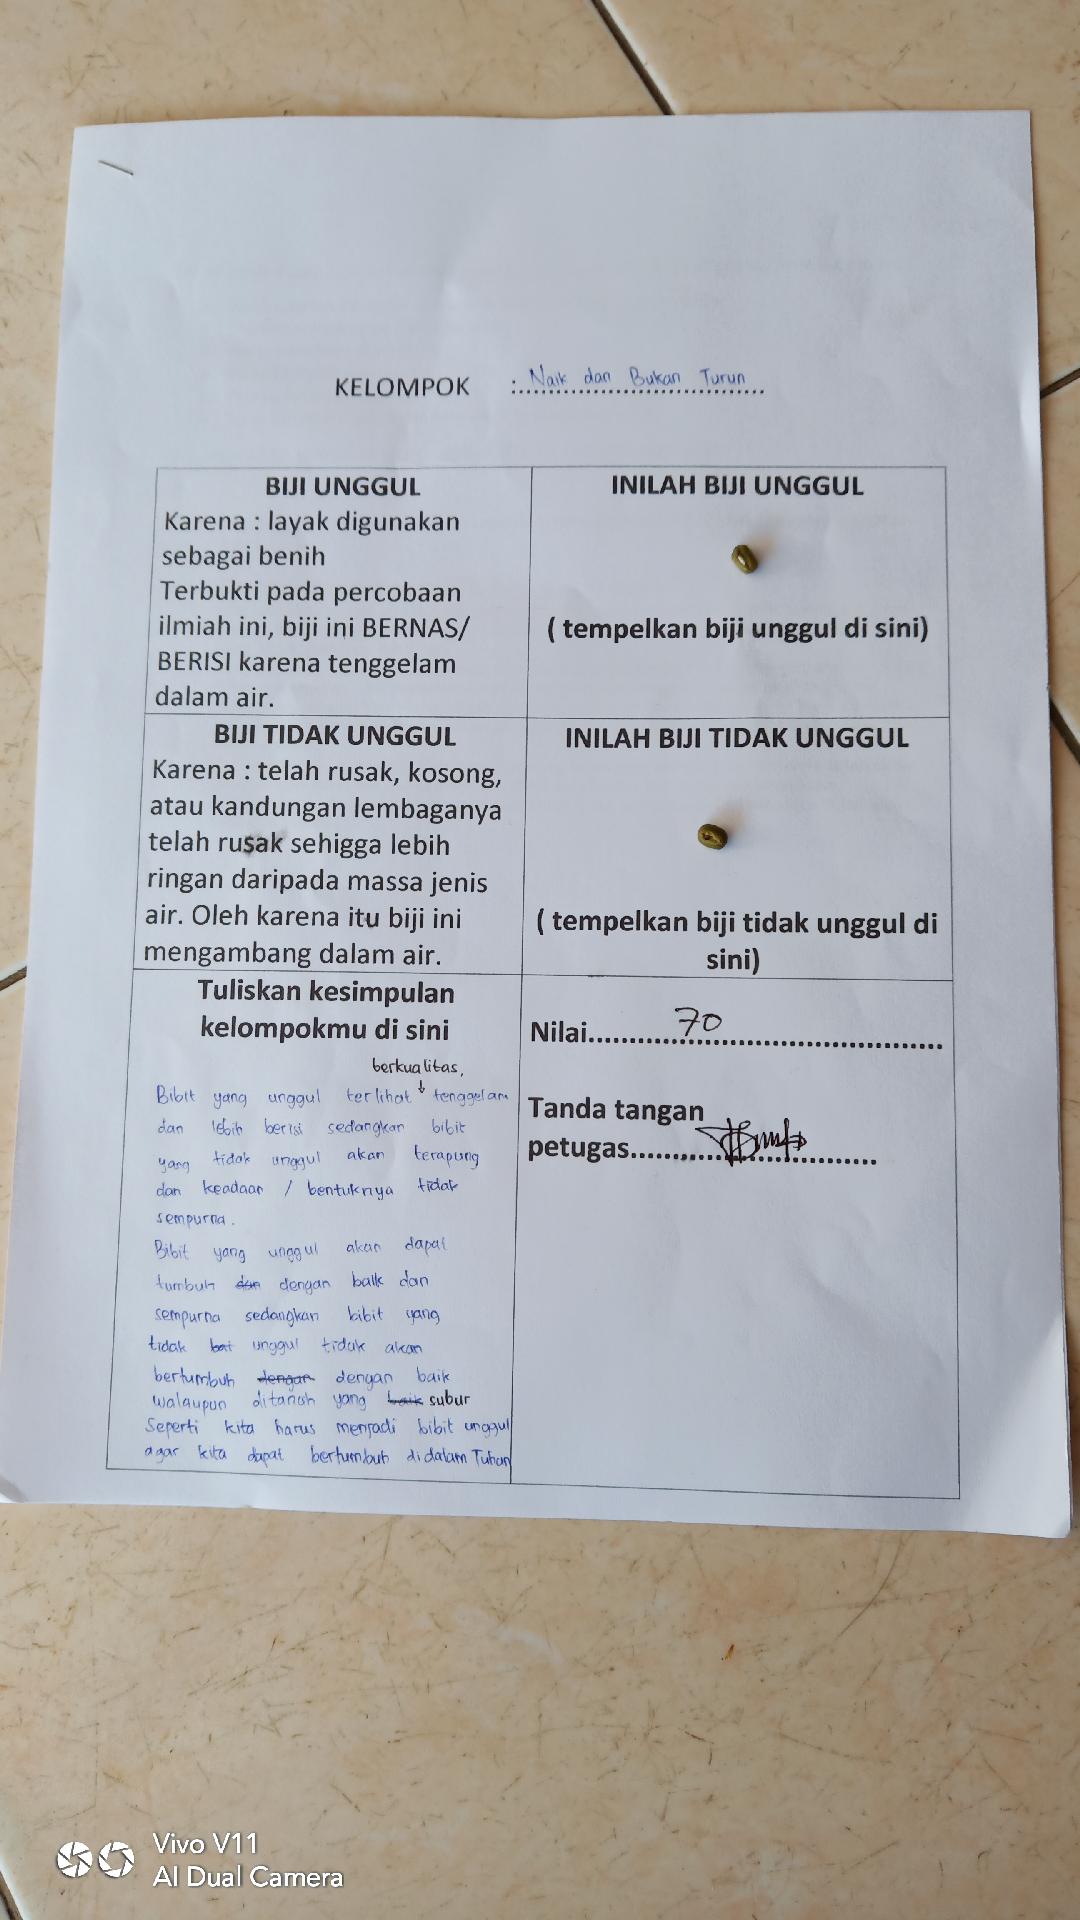 KELOMPOK : Naik dan Bukan Turun
BIJI UNGGUL
Karena : layak digunakan
sebagai benih
Terbukti pada percobaan
ilmiah ini, biji ini BERNAS/
BERISI karena tenggelam
dalam air.
INILAH BIJI UNGGUL
( tempelkan biji unggul di sini)
BIJI TIDAK UNGGUL
Karena : telah rusak, kosong,
atau kandungan lembaganya
telah rusak sehigga lebih
ringan daripada massa jenis
air. Oleh karena itu biji ini
mengambang dalam air.
INILAH BIJI TIDAK UNGGUL
( tempelkan biji tidak unggul di
sini)
Tuliskan kesimpulan
kelompokmu di sini
berkualitas,
Bibit yang unggul terlihat ↓ tenggelam
dan lebih berisi sedangkan bibit
yang tidak unggul akan terapung
dan keadaan / bentuknya tidak
sempurna.
Bibit yang unggul akan dapat
tumbuh dan dengan baik dan
sempurna sedangkan bibit yang
tidak bai unggul tidak akan
bertumbuh dengan dengan baik
walaupun ditanah yang baik subur
Seperti kita harus menjadi bibit unggul
agar kita dapat bertumbuh didalam Tuhan
Nilai........70........
Tanda tangan
petugas................
Vivo V11
AI Dual Camera